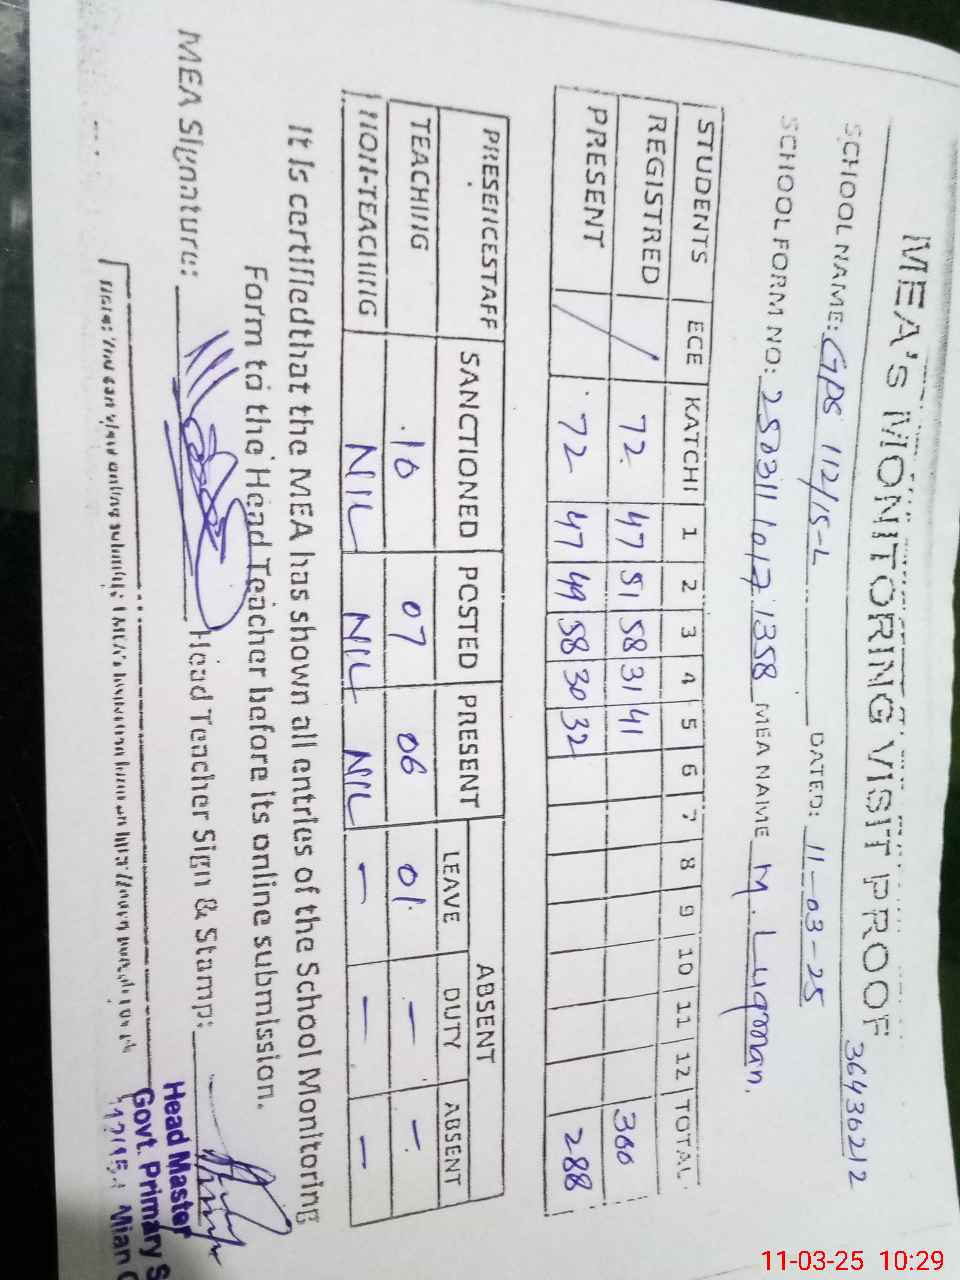 MEA'S MONITORING VISIT PROOF
36436212
SCHOOL NAME: GPS 112/15-L DATED: 11-03-25
SCHOOL FORM NO: 250311 MEA NAME M. Luqman.
STUDENTS ECE KATCHI 1 2 3 4 5 6 7 8 9 10 11 12 TOTAL
REGISTRED / 72 47 51 58 31 41 300
PRESENT / 72 47 49 58 30 32 288
PRESENCESTAFF SANCTIONED POSTED PRESENT ABSENT
LEAVE DUTY ABSENT
TEACHING 10 07 06 01 - -
NON-TEACHING NIL NIL NIL - - -
It is certifiedthat the MEA has shown all entries of the School Monitoring
Form to the Head Teacher before its online submission.
MEA Signature: Head Teacher Sign & Stamp:
Head Master
Govt. Primary S
112/15-L Mian
11-03-25 10:29